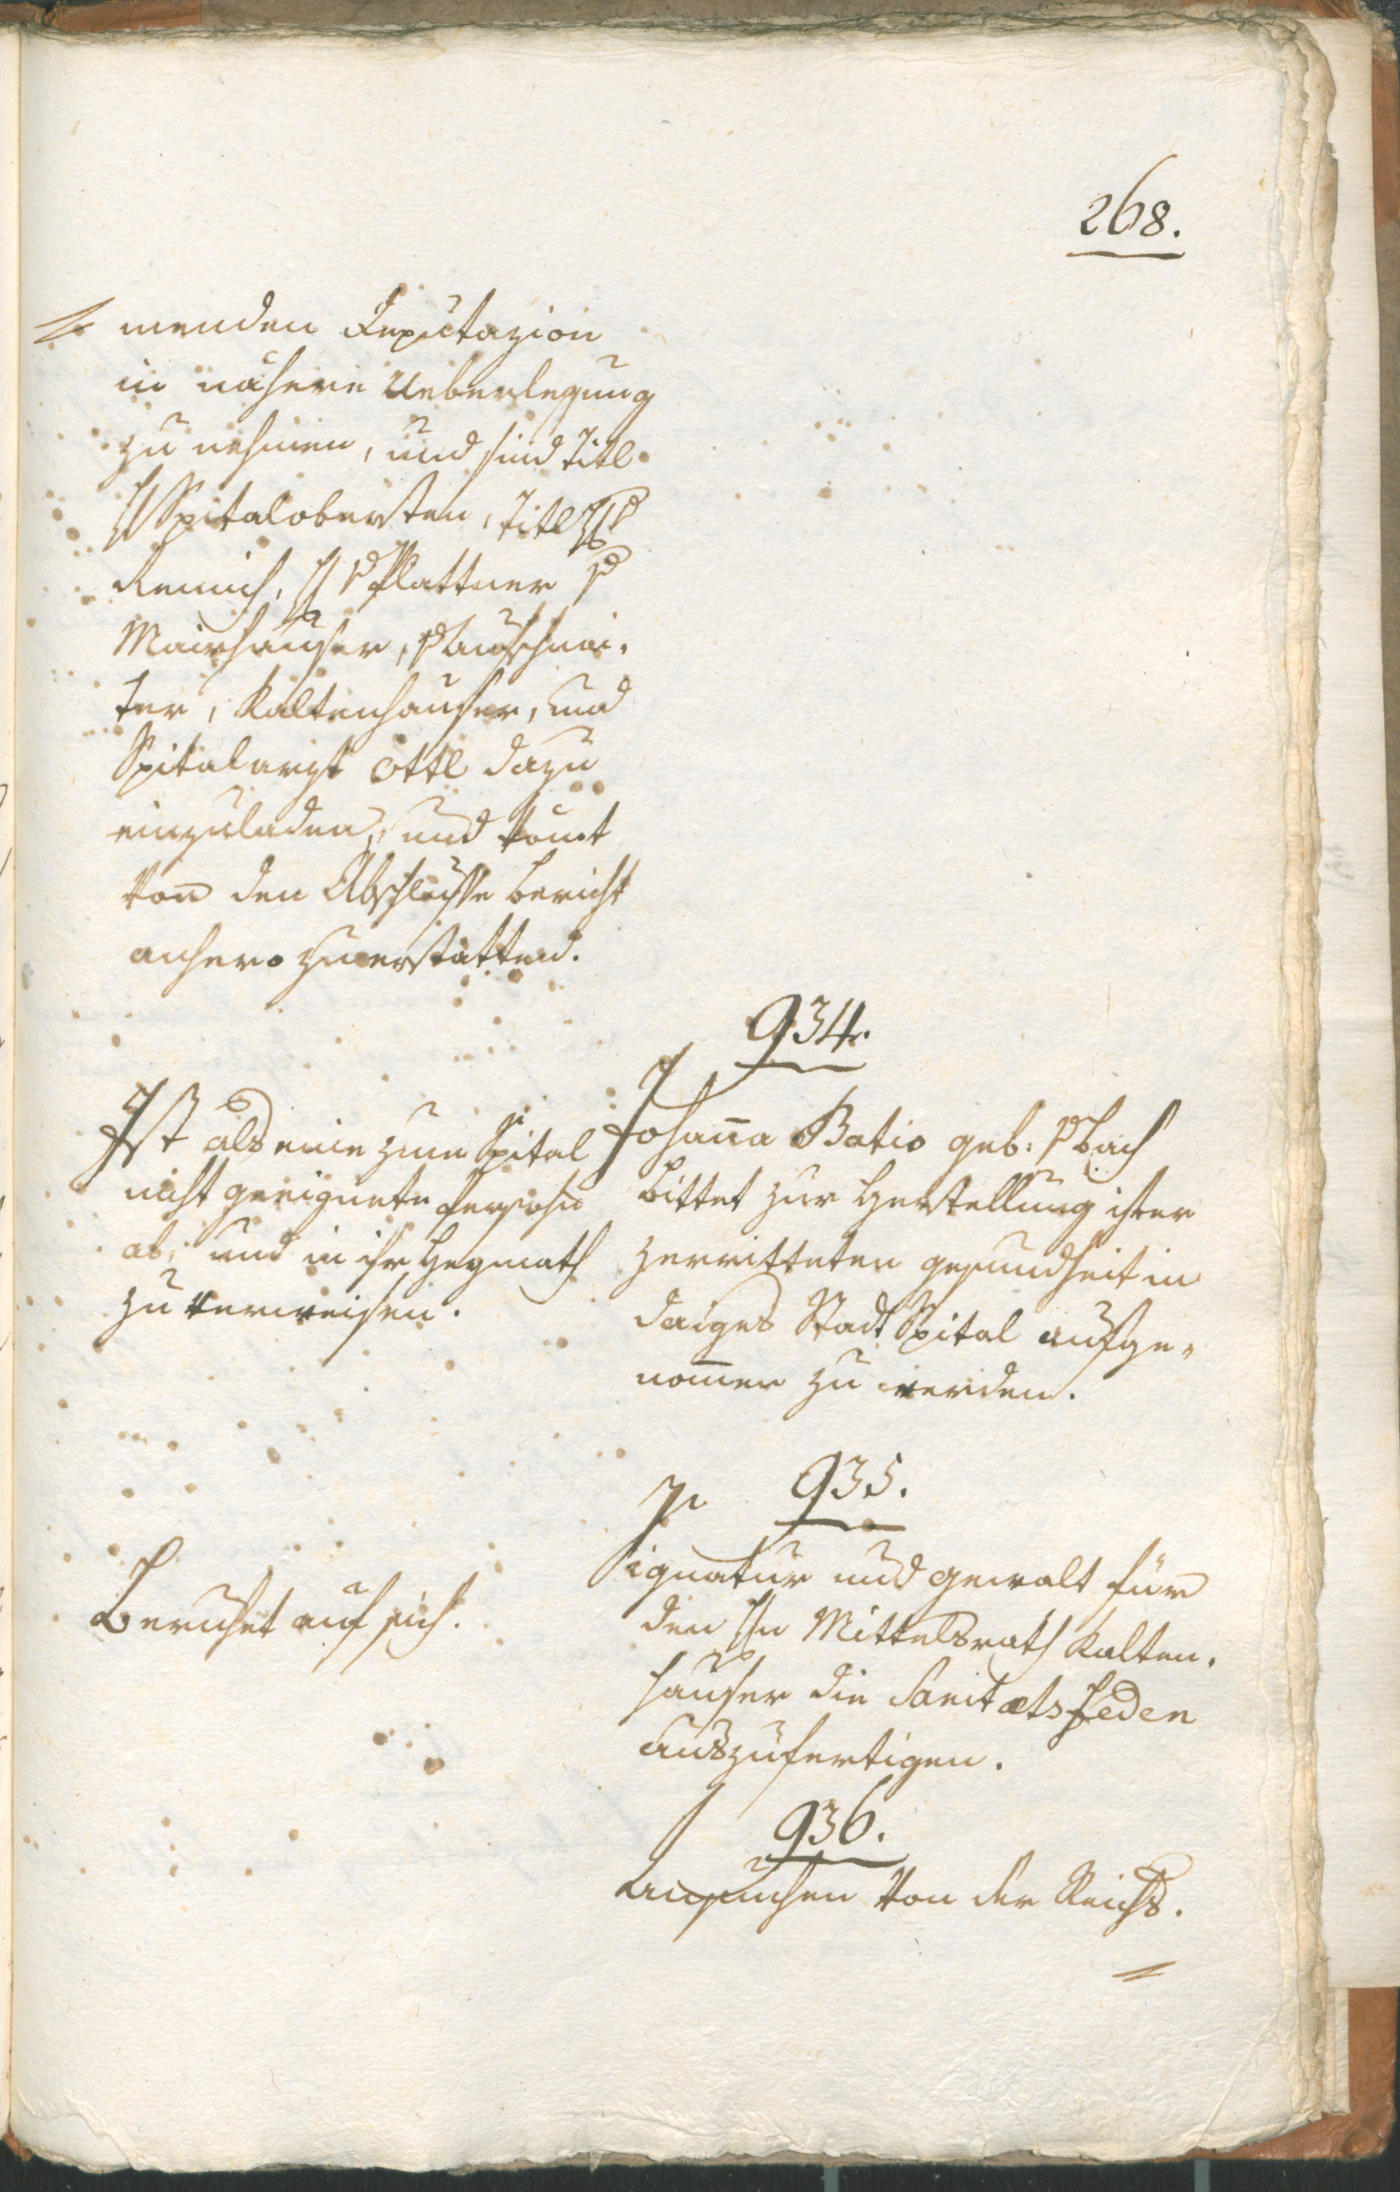 268.
menden Deputazion
in nähere Ueberlegung
zu nehmen, und sind Titl
H Spitalobersten, Titl H v
Remich, H v Plattner v
Mairhauser, v Aufschnai-
ter, Kaltenhauser, und
Spitalarzt Ottl dazu
einzuladen, und kömt
von den Abschlusse bericht
anhero zuerstatten.
934.
Ist als eine zum Spital
nicht geeignete Persohn
ab, und in ihr Heymath
zu verweisen.
Johanna Batio geb: v Lach
bittet zur Herstellung ihrer
zerritteten gesundheit in
daiges Stadt Spital aufge-
nommen zu werden.
935.
Beruhet auf sich.
Signatur und gewalt für
den Hn Mittelsrath Kalten-
hauser die Sanitæts Feden
auszufertigen.
936.
Ansuchen von der Reichs-